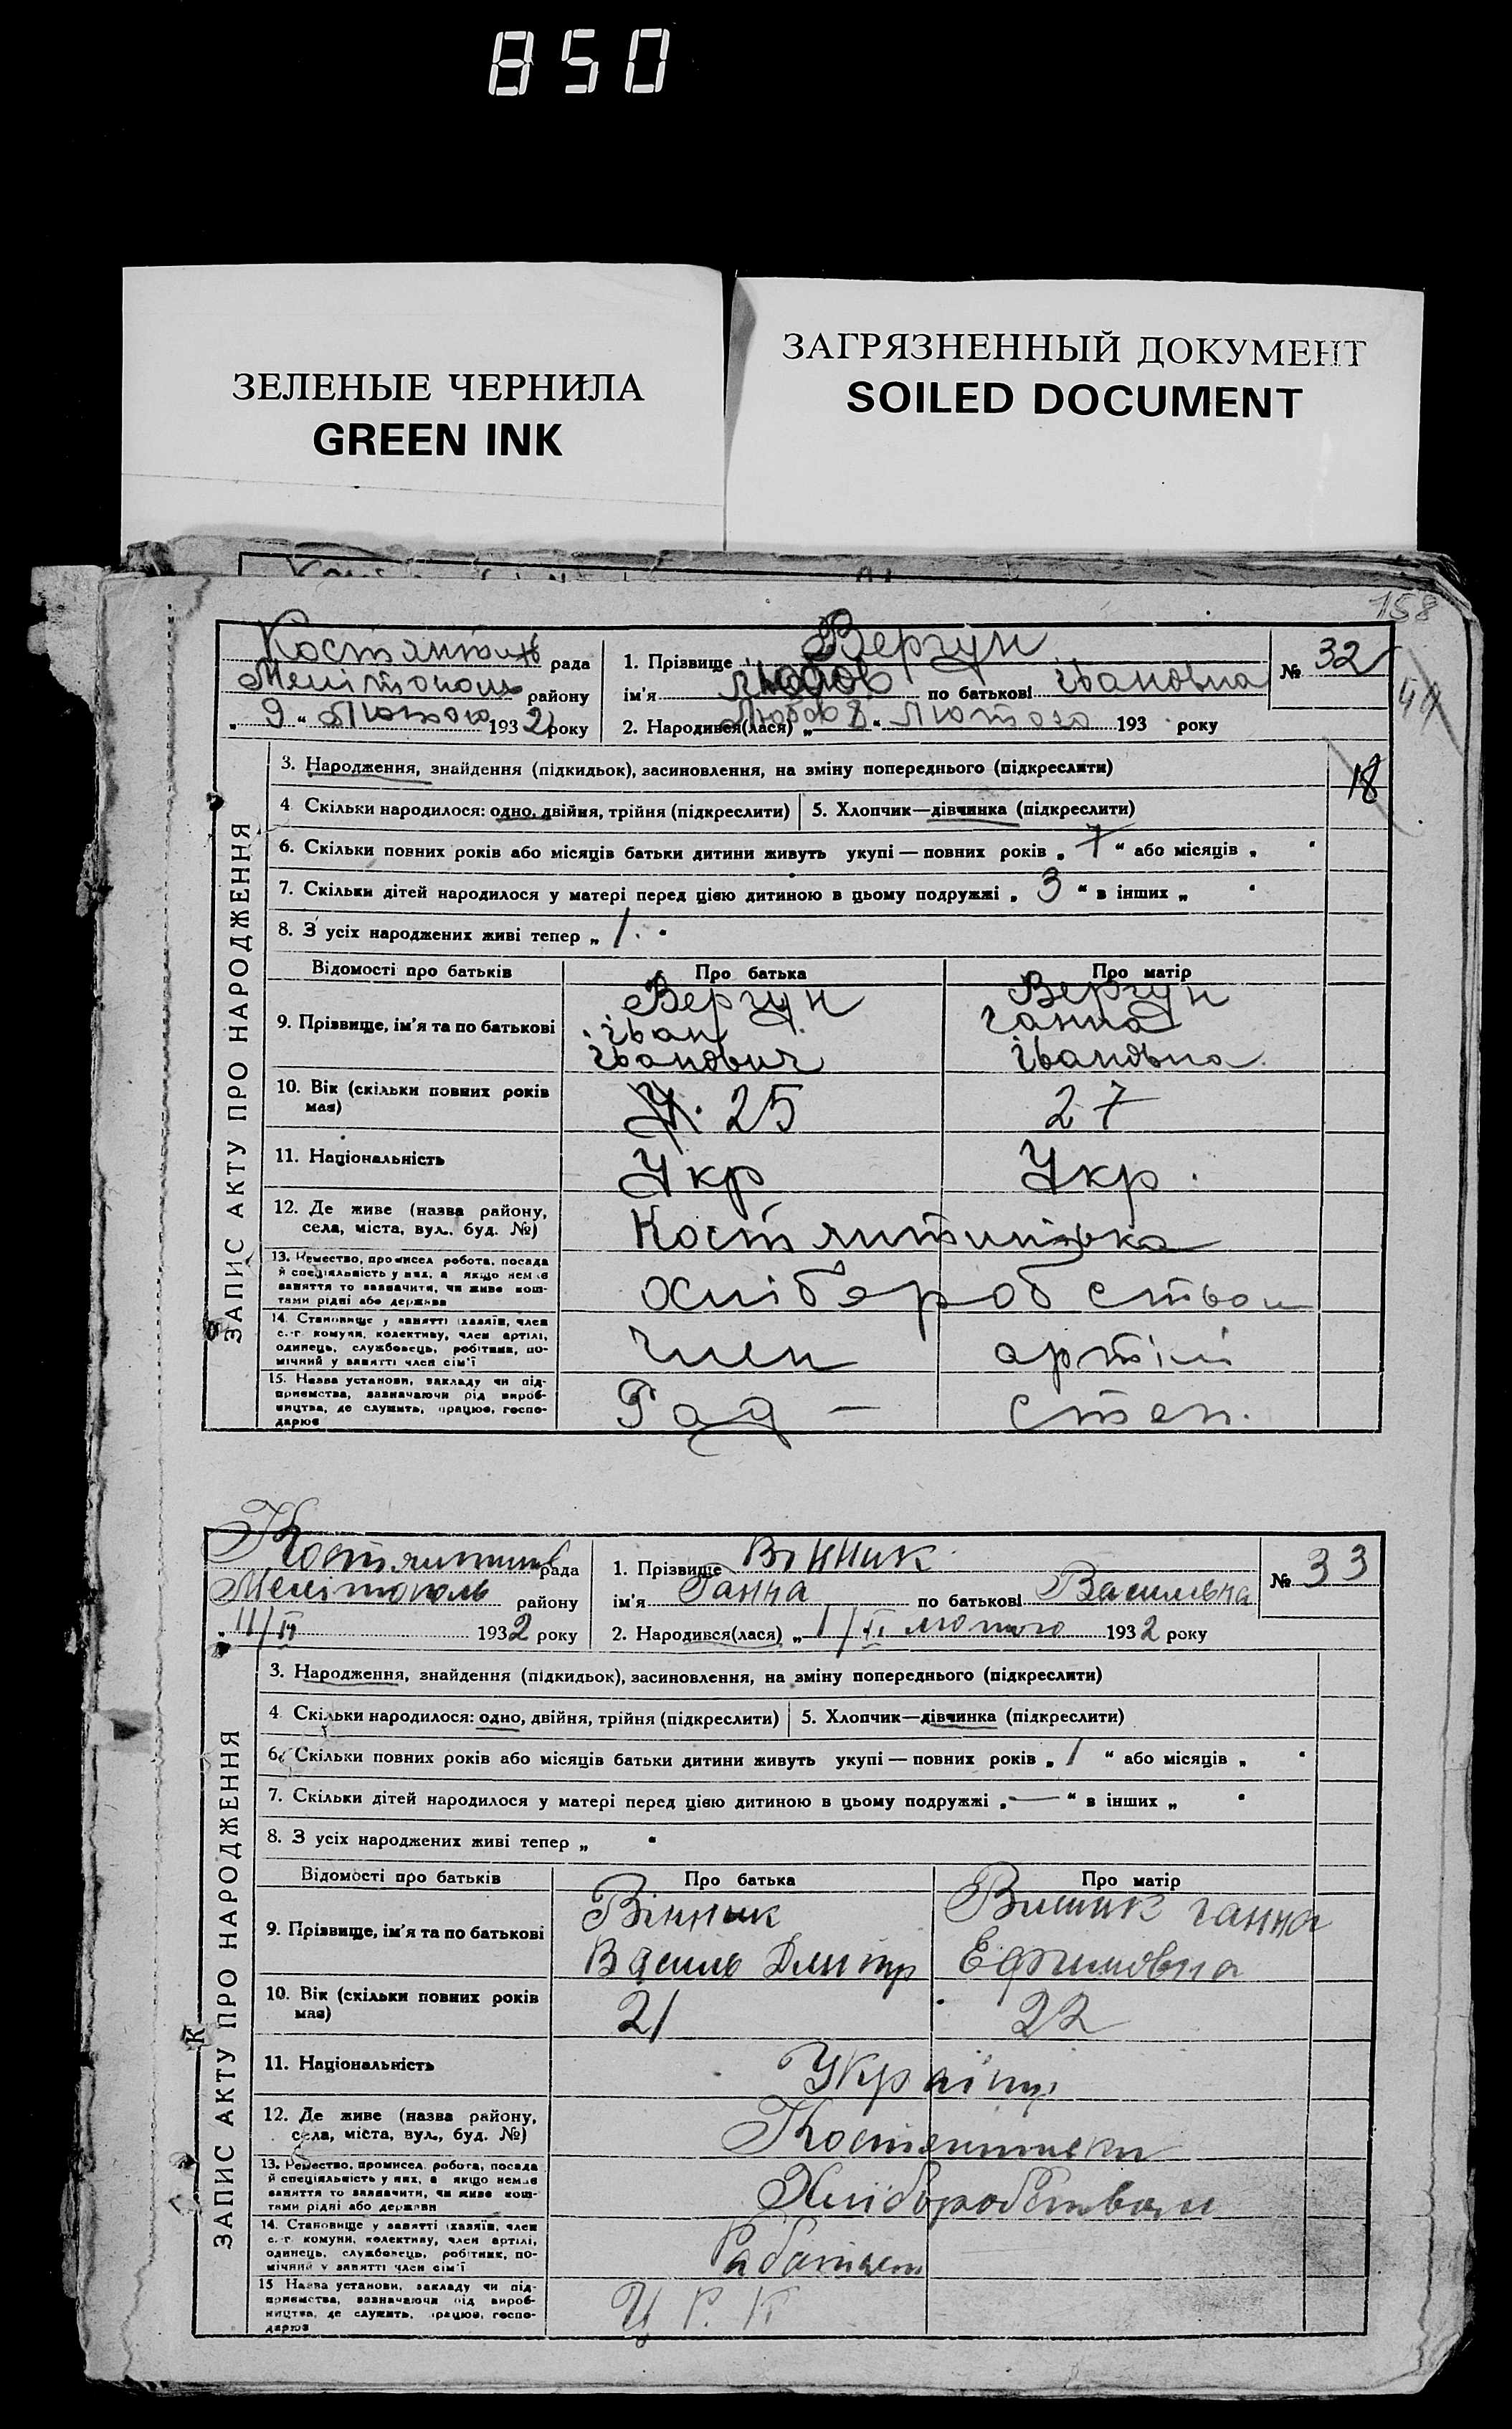 850
ЗЕЛЕНЫЕ ЧЕРНИЛА
GREEN INK
ЗАГРЯЗНЕННЫЙ ДОКУМЕНТ
SOILED DOCUMENT
158
ЗАПИС АКТУ ПРО НАРОДЖЕННЯ
Костянтин рада
Мелітополь району
„ 9 “ Лютого 1932 року
1. Прізвище Вергун
ім'я Любов по батькові івановна
2. Народився(лася) „ 8 “ Лютого 193 року
№ 32
3. Народження, знайдення (підкидьок), засиновлення, на зміну попереднього (підкреслити)
18
4 Скільки народилося: одно, двійня, трійня (підкреслити) 5. Хлопчик—дівчинка (підкреслити)
6. Скільки повних років або місяців батьки дитини живуть укупі — повних років „ 7 “ або місяців „
7. Скільки дітей народилося у матері перед цією дитиною в цьому подружжі „ 3 “ в інших „
8. З усіх народжених живі тепер „ 1.
Відомості про батьків Про батька Про матір
9. Прізвище, ім'я та по батькові
Вергун іван іванович
Вергун ганна івановна
10. Вік (скільки повних років має) 25 27
11. Національність Укр Укр.
12. Де живе (назва району, села, міста, вул., буд. №) Костянтинівка
13. Ремество, промисел робота, посада й спеціяльність у них, а якщо немає заняття то зазначити, чи живе коштами рідні або держава
хліберобством
14. Становище у занятті (хазяїн, член с.-г. комуни, колективу, член артілі, одинець, службовець, робітник, помічний у занятті член сім'ї
член артілі
15. Назва установи, закладу чи підприємства, зазначаючи рід виробництва, де служить, працює, господарює
Рад — степ.
ЗАПИС АКТУ ПРО НАРОДЖЕННЯ
Костянтинів рада
Мелітополь району
„ 11/II 1932 року
1. Прізвище Вінник
ім'я Ганна по батькові Васильвна
2. Народився(лася) „ 1/II лютого 1932 року
№ 33
3. Народження, знайдення (підкидьок), засиновлення, на зміну попереднього (підкреслити)
4 Скільки народилося: одно, двійня, трійня (підкреслити) 5. Хлопчик—дівчинка (підкреслити)
6. Скільки повних років або місяців батьки дитини живуть укупі — повних років „ 1 “ або місяців „
7. Скільки дітей народилося у матері перед цією дитиною в цьому подружжі „ — “ в інших „
8. З усіх народжених живі тепер „
Відомості про батьків Про батька Про матір
9. Прізвище, ім'я та по батькові
Вінник
Василь Дмитр
Винник ганна
Ефимовна
10. Вік (скільки повних років має) 21 22
11. Національність Україн
12. Де живе (назва району, села, міста, вул., буд. №)
13. Ремество, промисел робота, посада й спеціяльність у них, а якщо немає заняття то зазначити, чи живе коштами рідні або держави
Хліборобством
14. Становище у занятті (хазяїн, член с.-г. комуни, колективу, член артілі, одинець, службовець, робітник, помічний у занятті член сім'ї
15 Назва установи, закладу чи підприємства, зазначаючи рід виробництва, де служить, працює, господарює
Ц Р К